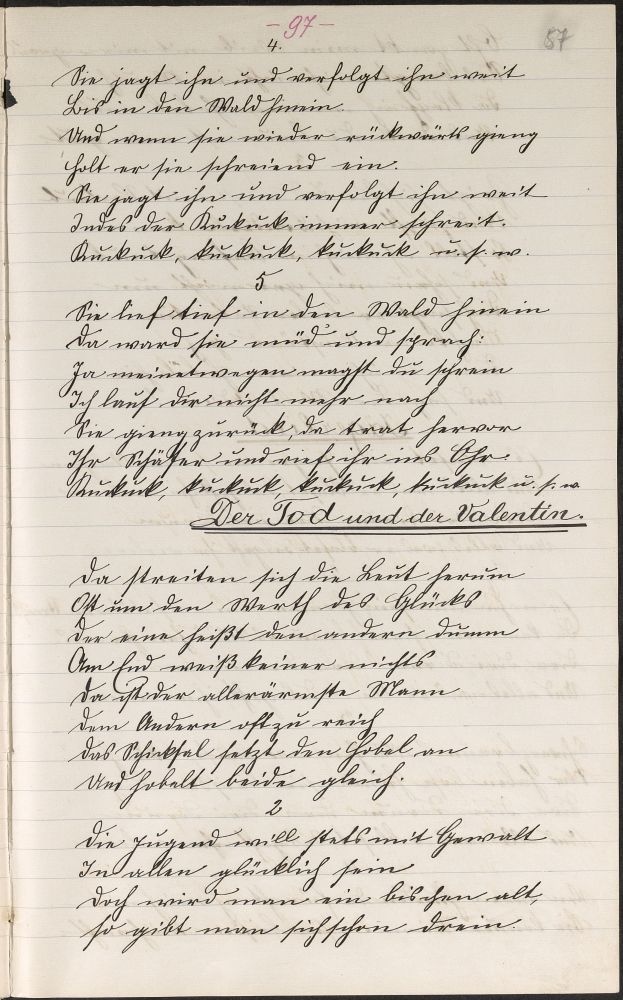 - 97 -
87
4.
Sie jagt ihn und verfolgt ihn weit
Bis in den Wald hinein.
Und wenn sie wieder rückwärts gieng
Holt er sie schreiend ein.
Sie jagt ihn und verfolgt ihn weit
Indes der Kuckuck immer schreit.
Kuckuck, kuckuck, kuckuck u. s. w.
5
Sie lief tief in den Wald hinein
Da ward sie müd und sprach:
Ja meinetwegen magst du schrein
Ich lauf dir nicht mehr nach
Sie gieng zurück, da trat hervor
Ihr Schäfer und rief ihr ins Ohr.
Kuckuck, kuckuck, kuckuck, kuckuck u. s. w
Der Tod und der Valentin.
Da streiten sich die Leut herum
Oft um den Werth des Glücks
Der eine heißt den andern dumm
Am End weiß keiner nichts
Da ist der allerärmste Mann
Dem Andern oft zu reich
Das Schicksal setzt den Hobel an
Und hobelt beide gleich.
2
Die Jugend will stets mit Gewalt
In allen glücklich sein
Doch wird man ein bischen alt,
so gibt man sich schon drein.